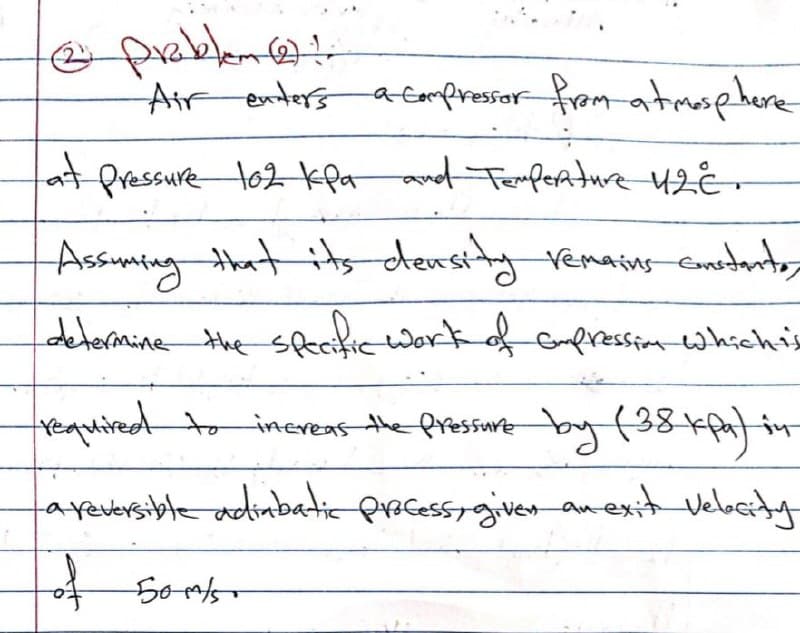 ② Problem (2):
Air enters a compressor from atmosphere
at Pressure 102 kPa and Temperature 42°C.
Assuming that its density remains constant,
determine the specific work of compression which is
required to increas the pressure by (38 kPa) in
a reversible adiabatic process, given an exit velocity
of 50 m/s.